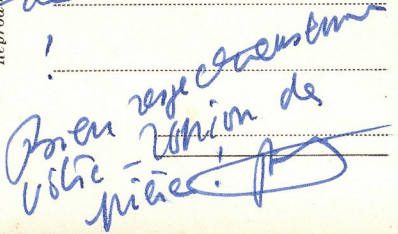 !
Bien respectueusement
vôtre – Union de
prière !